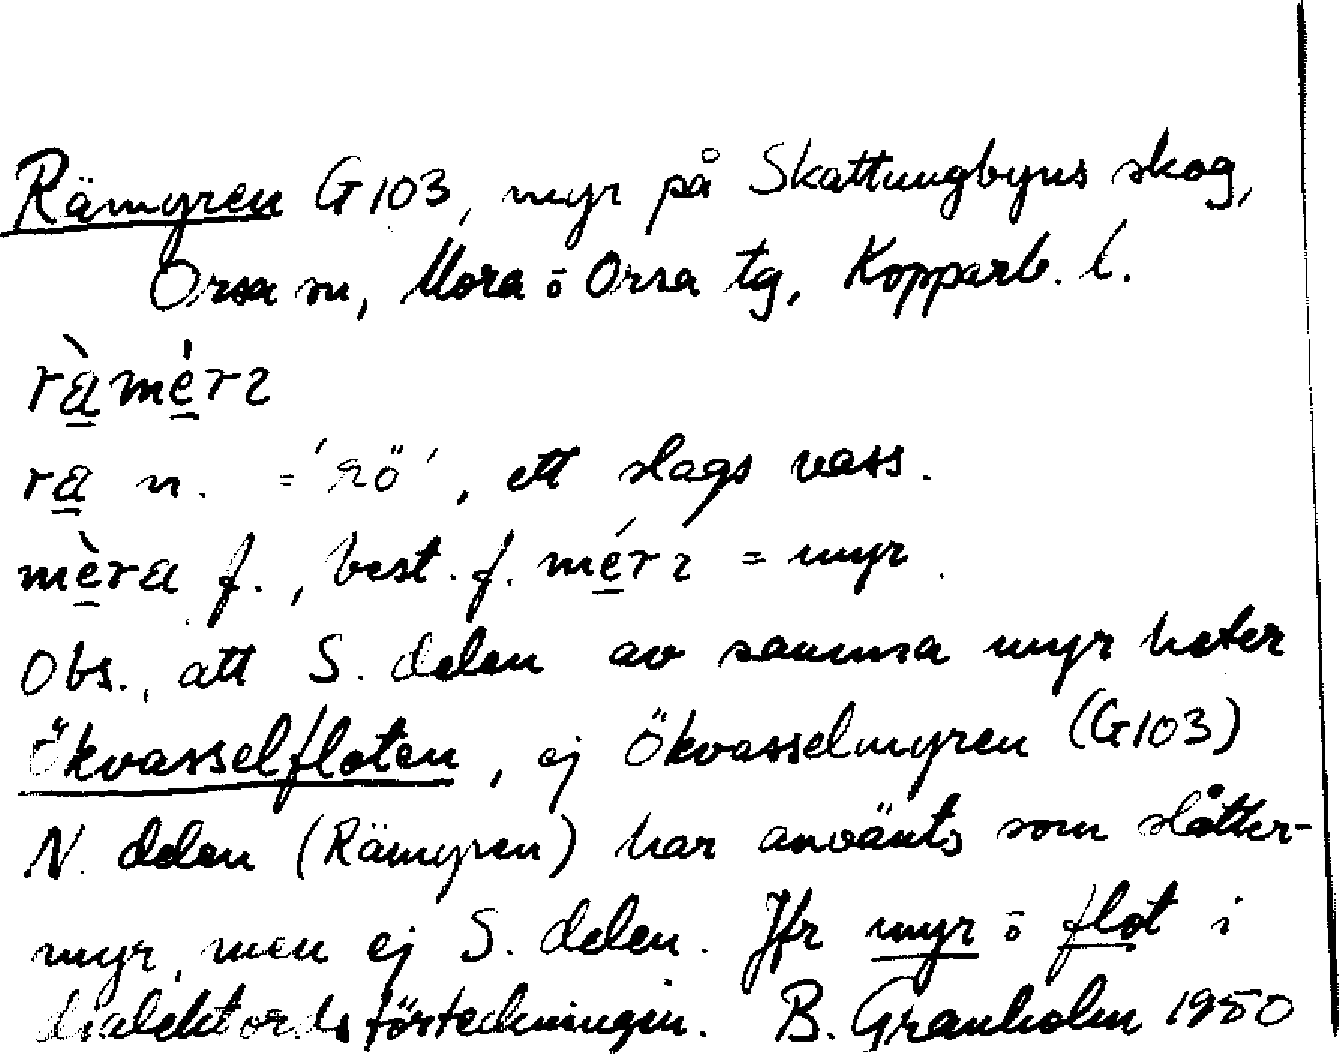 Rämyren G103, myr på Skattungbyns skog,
Orsa sn, Mora o Orsa tg, Kopparb. l.
rà̱mé̱rɿ
ra̱ n. = 'rö', ett slags vass.
mè̱ra f., best. f. mé̱rɿ = myr.
Obs., att S. delen av samma myr heter
Ökvasselfloten, ej Ökvasselmyren (G103)
N. delen (Rämyren) har använts som slåtter-
myr, men ej S. delen. Jfr myr o flot i
dialektordsförteckningen. B. Granholm 1950